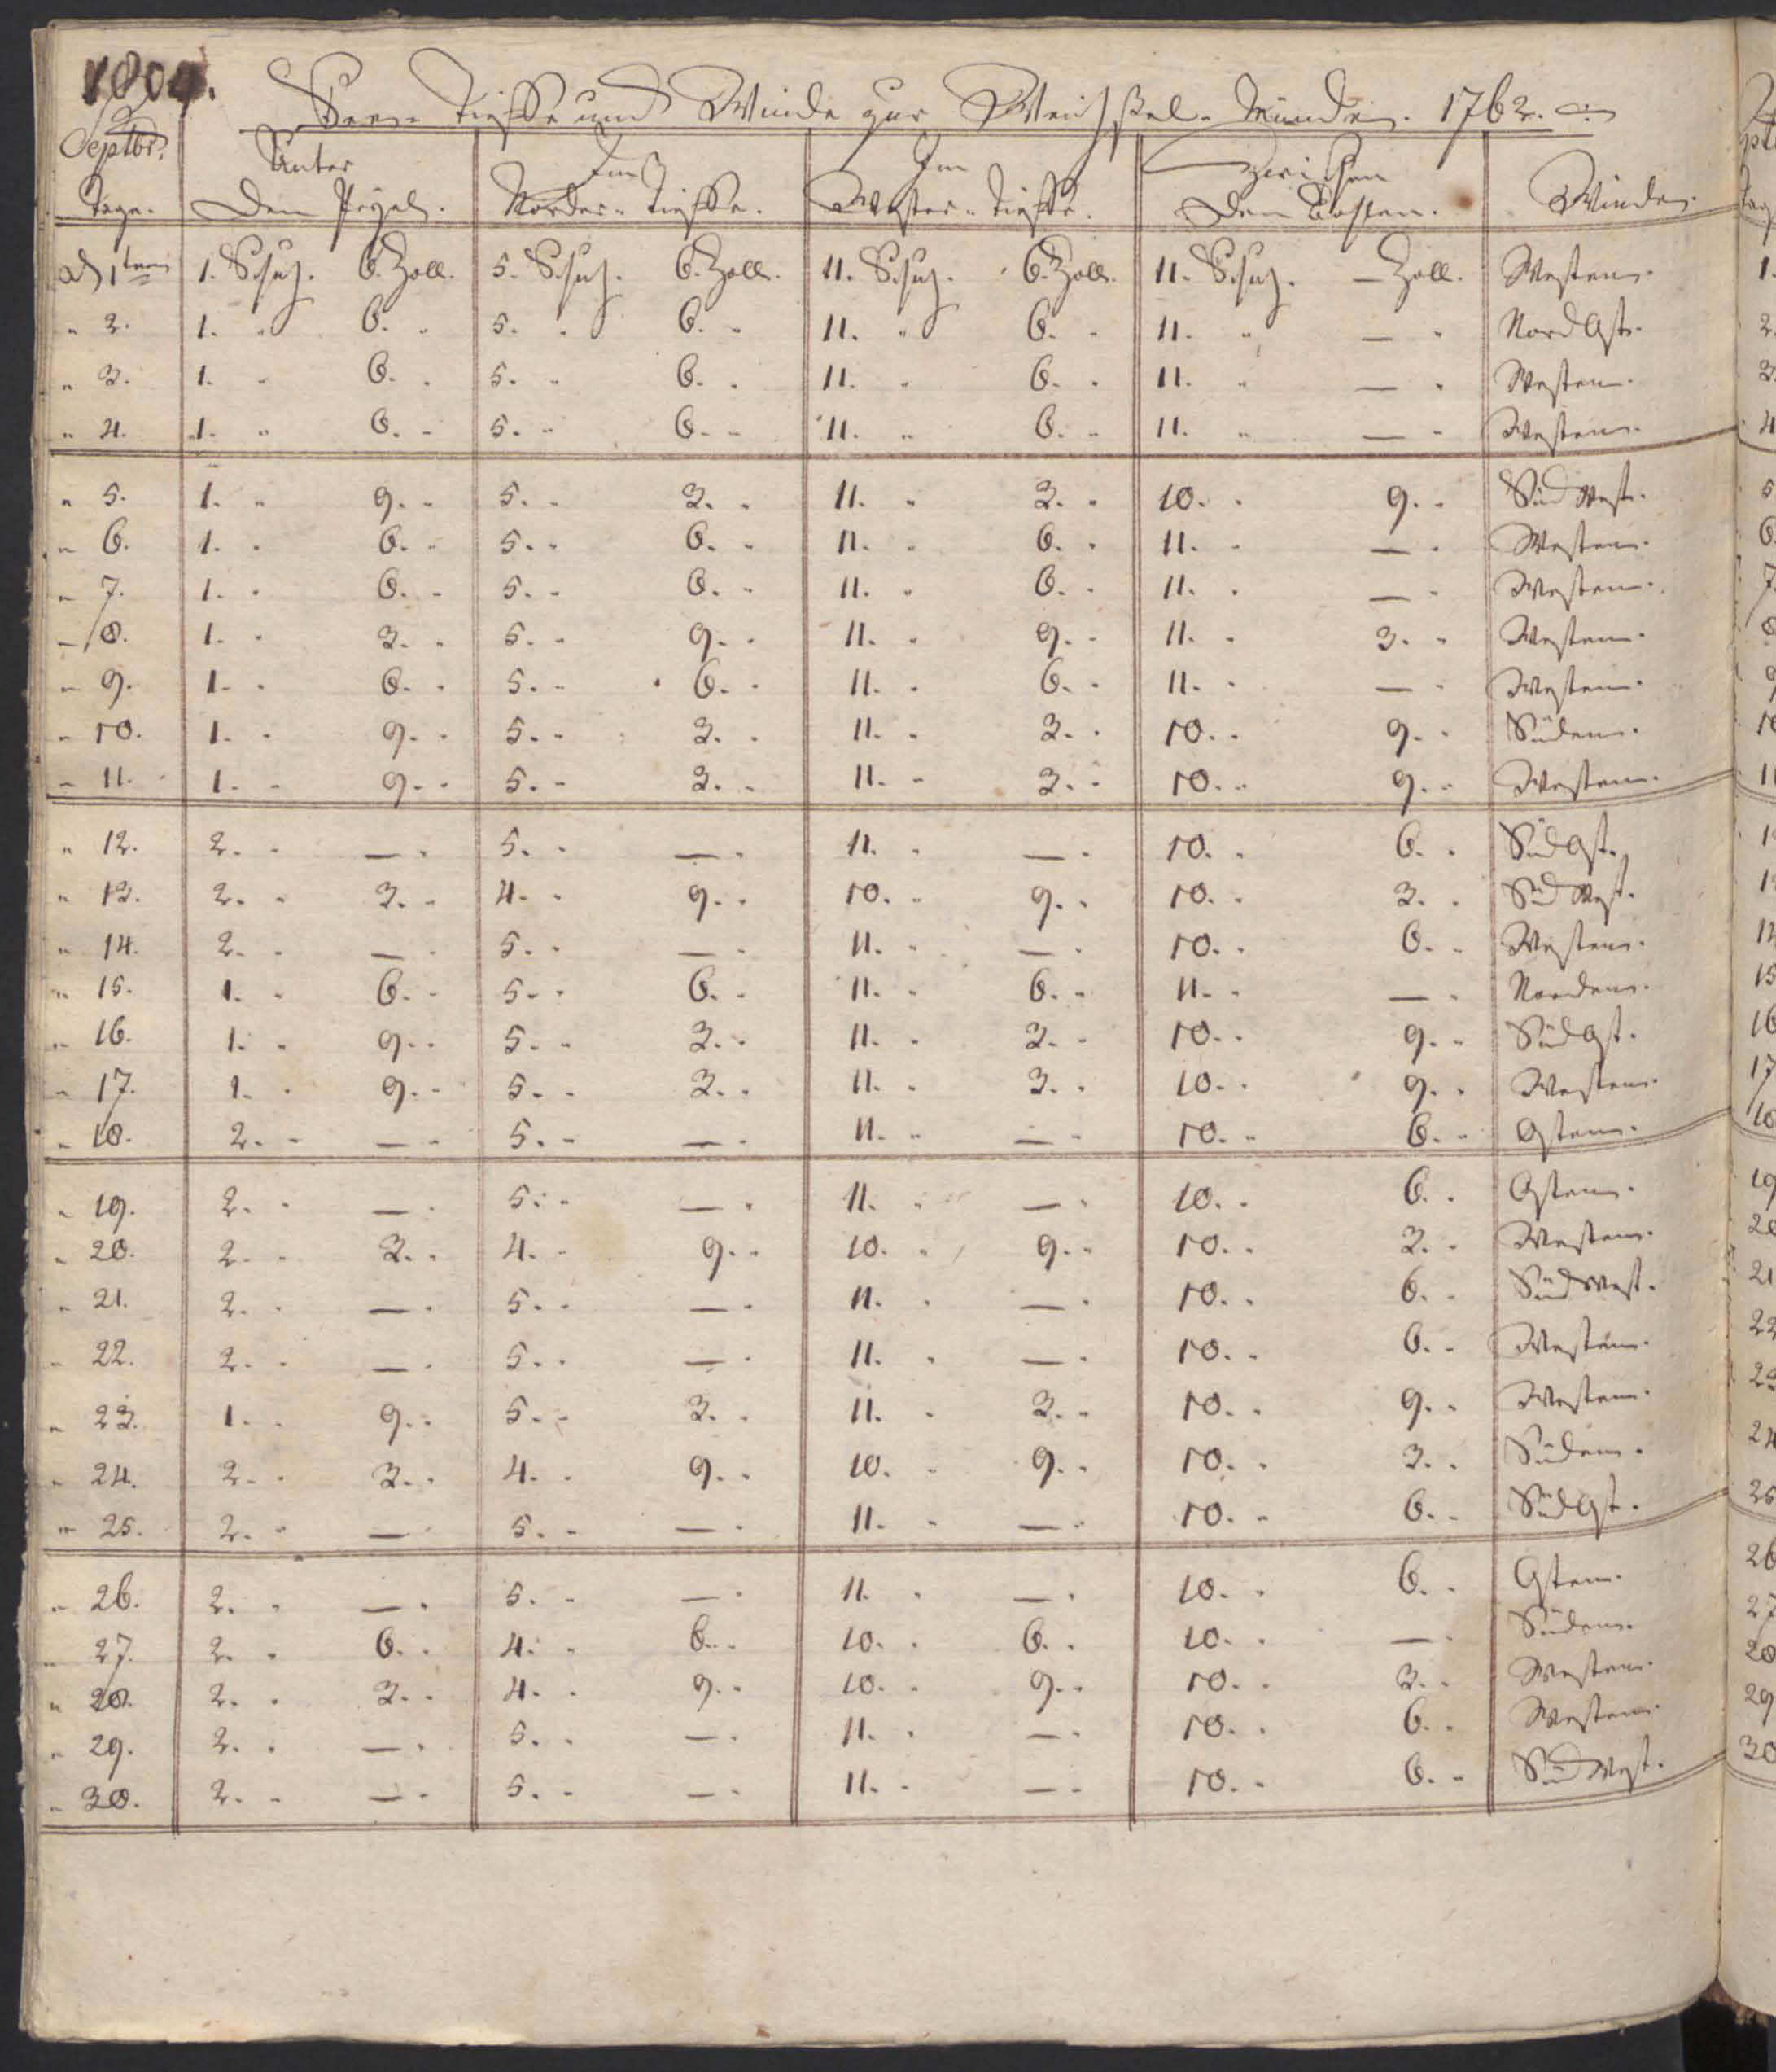 1804.
Seen-Tieffe und Winde zur Weichsel-Münde. 1762.
Septbr. Unter Im Im Zwischen
Tage. Dem Pegel. Norder-Tieffe. Wester-Tieffe. Den Bohlen. Winde.
1ten 1. Schuh. 6. Zoll. 5. Schuh. 6. Zoll. 11. Schuh. 6. Zoll. 11. Schuh. — Zoll. Westen.
" 2. 1. " 6. " 5. " 6. " 11. " 6. " 11. " — " Nord Ost.
" 3. 1. " 6. " 5. " 6. " 11. " 6. " 11. " — " Westen.
" 4. 1. " 6. " 5. " 6. " 11. " 6. " 11. " — " Westen.
" 5. 1. " 9. " 5. " 3. " 11. " 3. " 10. " 9. " Süd West.
" 6. 1. " 6. " 5. " 6. " 11. " 6. " 11. " — " Westen.
" 7. 1. " 6. " 5. " 6. " 11. " 6. " 11. " — " Westen.
" 8. 1. " 3. " 5. " 9. " 11. " 9. " 11. " 3. " Westen.
" 9. 1. " 6. " 5. " 6. " 11. " 6. " 11. " — " Westen.
" 10. 1. " 9. " 5. " 3. " 11. " 3. " 10. " 9. " Süden.
" 11. 1. " 9. " 5. " 3. " 11. " 3. " 10. " 9. " Westen.
" 12. 2. " — " 5. " — " 11. " — " 10. " 6. " Süd Ost.
" 13. 2. " 3. " 4. " 9. " 10. " 9. " 10. " 3. " Süd West.
" 14. 2. " — " 5. " — " 11. " — " 10. " 6. " Westen.
" 15. 1. " 6. " 5. " 6. " 11. " 6. " 11. " — " Norden.
" 16. 1. " 9. " 5. " 3. " 11. " 3. " 10. " 9. " Süd Ost.
" 17. 1. " 9. " 5. " 3. " 11. " 3. " 10. " 9. " Westen.
" 18. 2. " — " 5. " — " 11. " — " 10. " 6. " Osten.
" 19. 2. " — " 5. " — " 11. " — " 10. " 6. " Osten.
" 20. 2. " 3. " 4. " 9. " 10. " 9. " 10. " 3. " Westen.
" 21. 2. " — " 5. " — " 11. " — " 10. " 6. " Süd West.
" 22. 2. " — " 5. " — " 11. " — " 10. " 6. " Westen.
" 23. 1. " 9. " 5. " 3. " 11. " 3. " 10. " 9. " Westen.
" 24. 2. " 3. " 4. " 9. " 10. " 9. " 10. " 3. " Süden.
" 25. 2. " — " 5. " — " 11. " — " 10. " 6. " Süd Ost.
" 26. 2. " — " 5. " — " 11. " — " 10. " 6. " Osten.
" 27. 2. " 6. " 4. " 6. " 10. " 6. " 10. " — " Süden.
" 28. 2. " 3. " 4. " 9. " 10. " 9. " 10. " 3. " Westen.
" 29. 2. " — " 5. " — " 11. " — " 10. " 6. " Westen.
" 30. 2. " — " 5. " — " 11. " — " 10. " 6. " Süd West.